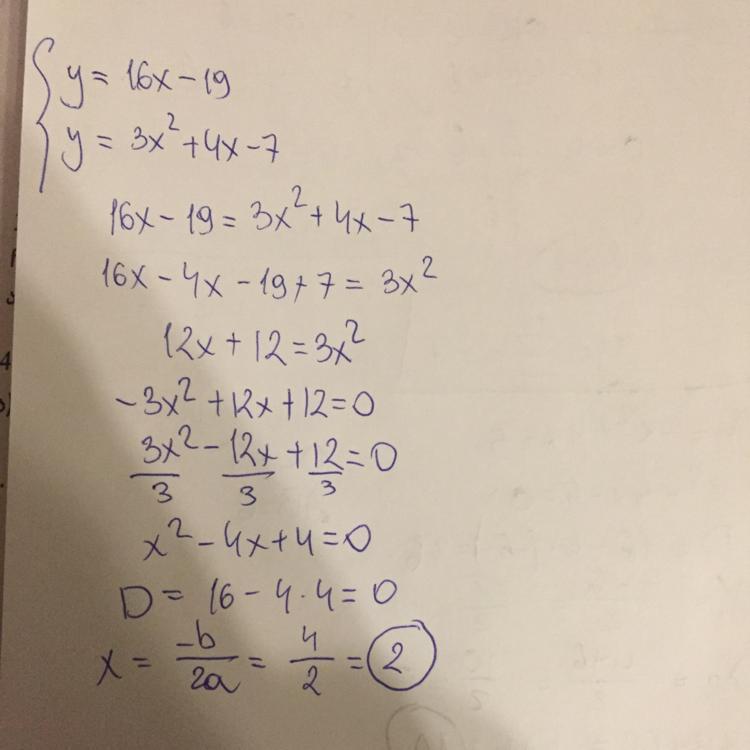 y = 16x - 19
y = 3x² + 4x - 7
16x - 19 = 3x² + 4x - 7
16x - 4x - 19 + 7 = 3x²
12x + 12 = 3x²
-3x² + 12x + 12 = 0
3x²/3 - 12x/3 + 12/3 = 0
x² - 4x + 4 = 0
D = 16 - 4 · 4 = 0
x = -b/2a = 4/2 = 2